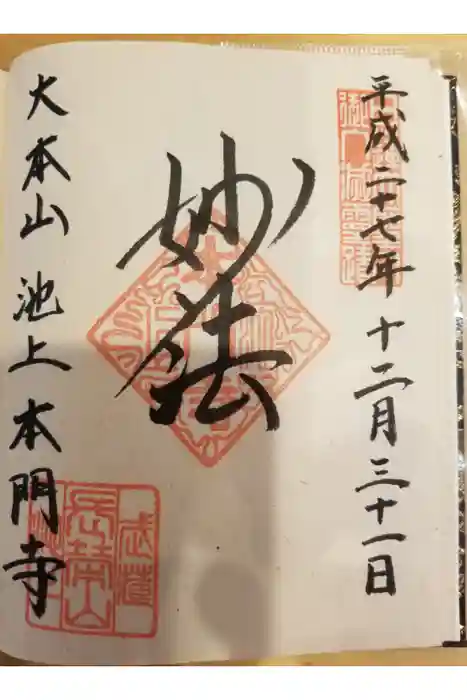 平成二十七年十二月三十一日
妙法
大本山 池上本門寺